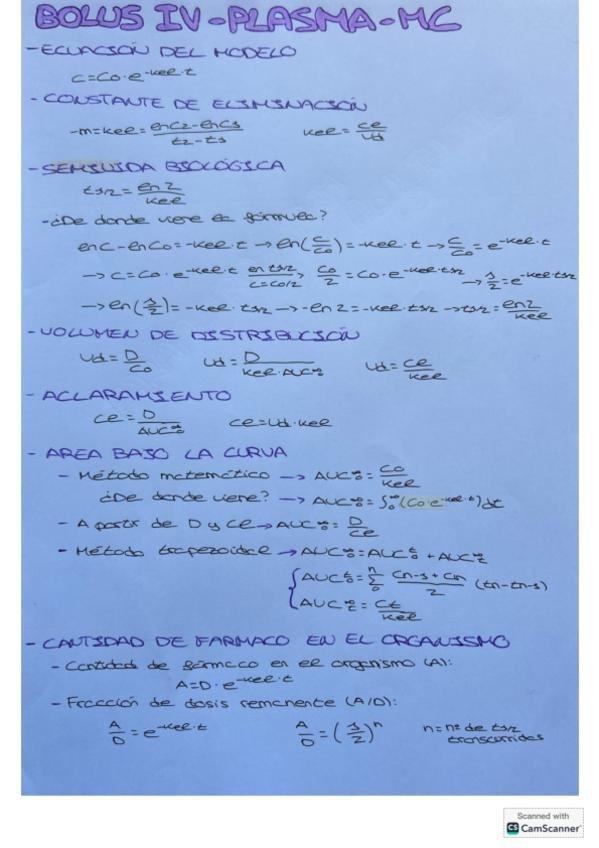 BOLUS IV-PLASMA-MC
- ECUACIÓN DEL MODELO
C=Co·e^-kel·t
- CONSTANTE DE ELIMINACIÓN
-m=kel= (lnC2-lnC1)/(t2-t1)   kel= Cl/Vd
- SEMIVIDA BIOLÓGICA
t1/2= ln2/kel
- ¿De donde viene la fórmula?
lnC-lnCo=-kel·t → ln(C/Co)=-kel·t → C/Co=e^-kel·t
→ C=Co·e^-kel·t en t1/2, C=Co/2 Co/2=Co·e^-kel·t1/2 → 1/2=e^-kel·t1/2
→ ln(1/2)=-kel·t1/2 → -ln2=-kel·t1/2 → t1/2= ln2/kel
- VOLUMEN DE DISTRIBUCIÓN
Vd= D/Co   Vd= D/(kel·AUC0∞)   Vd= Cl/kel
- ACLARAMIENTO
Cl= D/AUC0∞   Cl=Vd·kel
- AREA BAJO LA CURVA
- Método matemático → AUC0∞= Co/kel
¿De donde viene? → AUC0∞=∫0∞(Co·e^-kel·t)dt
- A partir de D y Cl → AUC0∞= D/Cl
- Método trapezoidal → AUC0∞=AUC0t + AUCt∞
{ AUC0t= Σ0n (Cn-1+Cn)/2 (tn-tn-1)
AUCt∞= Ct/kel
- CANTIDAD DE FARMACO EN EL ORGANISMO
- Cantidad de fármaco en el organismo (A):
A=D·e^-kel·t
- Fracción de dosis remanente (A/D):
A/D=e^-kel·t   A/D=(1/2)^n   n=nº de t1/2 transcurridos
Scanned with
CS CamScanner